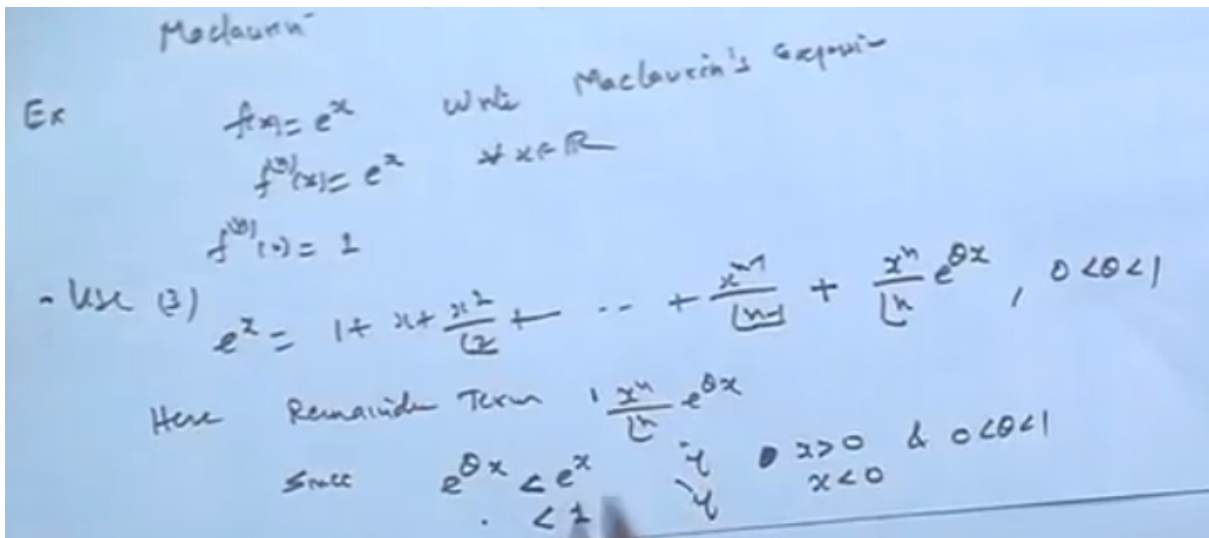 Maclaurin
Ex f(x) = e^x Write Maclaurin's Expansi-
f^(n)(x) = e^x ∀ x ∈ R
f^(n)(0) = 1
- Use (3)
e^x = 1 + x + x^2/⌊2 + - -- + x^n-1/⌊n-1 + x^n/⌊n e^θx , 0 < θ < 1
Here Remainder Term , x^n/⌊n e^θx
Since e^θx < e^x if x > 0 & 0 < θ < 1
. < 1 if x < 0